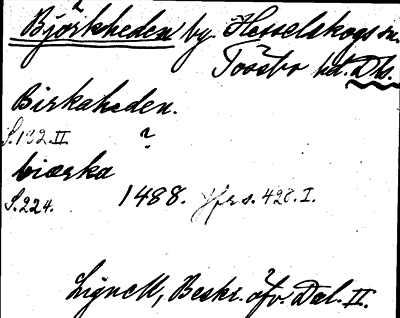 Björkheden by. Hesselskogs sn.
Tössbo hd. Dls.
Birkaheden.
S. 132. II
?
biærka
S. 224.
1488. Jfr s. 428. I.
Lignell, Beskr. öfv. Dal. II.